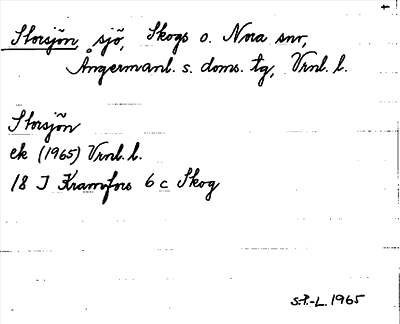 Storsjön, sjö, Skogs o. Nora snr,
Ångermanl. s. doms. tg, Vrnl. l.
Storsjön
ek (1965) Vrnl. l.
18 I Kramfors 6 c Skog
S.P.-L. 1965